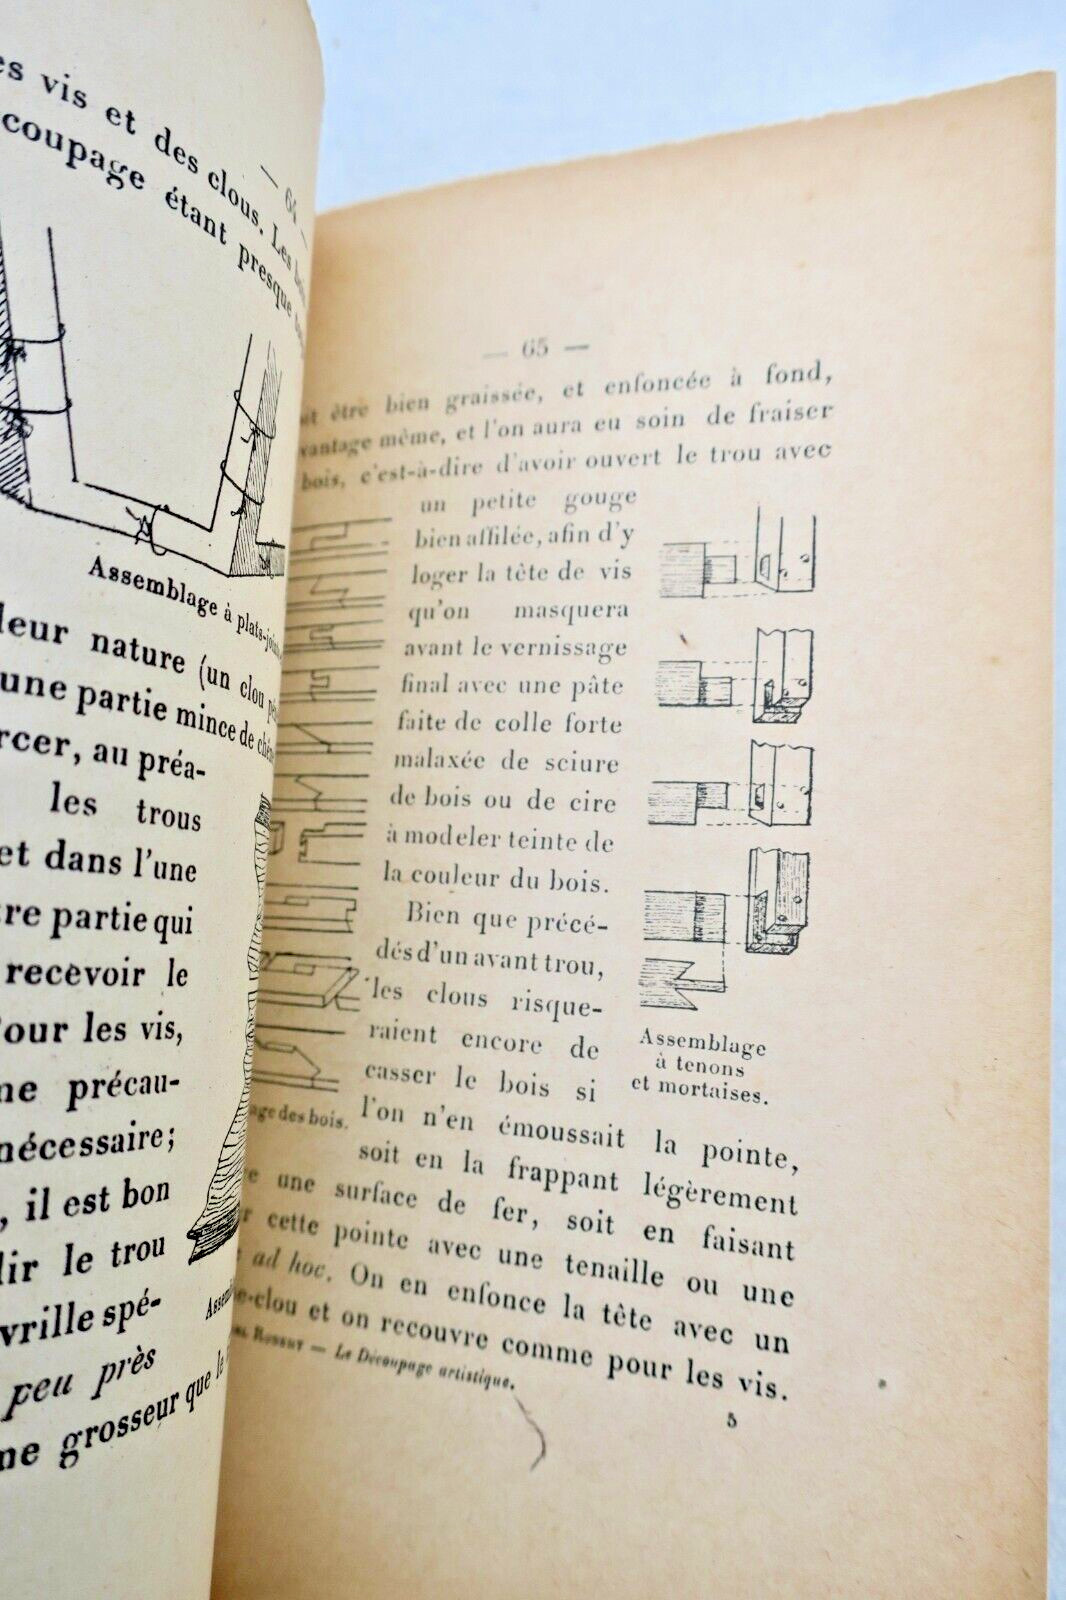 — 64 —
vis et des clous. Les
étant presque
Assemblage à plats-joints
leur nature (un clou
une partie mince de
au préa-
les trous
et dans l'une
partie qui
recevoir le
Pour les vis,
précau-
nécessaire;
, il est bon
le trou
vrille spé-
peu près
grosseur que le
— 65 —
être bien graissée, et enfoncée à fond,
même, et l'on aura eu soin de fraiser
bois, c'est-à-dire d'avoir ouvert le trou avec
un petite gouge
bien affilée, afin d'y
loger la tête de vis
qu'on masquera
avant le vernissage
final avec une pâte
faite de colle forte
malaxée de sciure
de bois ou de cire
à modeler teinte de
la couleur du bois.
Bien que précé-
dés d'un avant trou,
les clous risque-
raient encore de
casser le bois si
l'on n'en émoussait la pointe,
soit en la frappant légèrement
une surface de fer, soit en faisant
cette pointe avec une tenaille ou une
ad hoc. On en enfonce la tête avec un
et on recouvre comme pour les vis.
des bois.
Assemblage
à tenons
et mortaises.
— Le Découpage artistique.
5